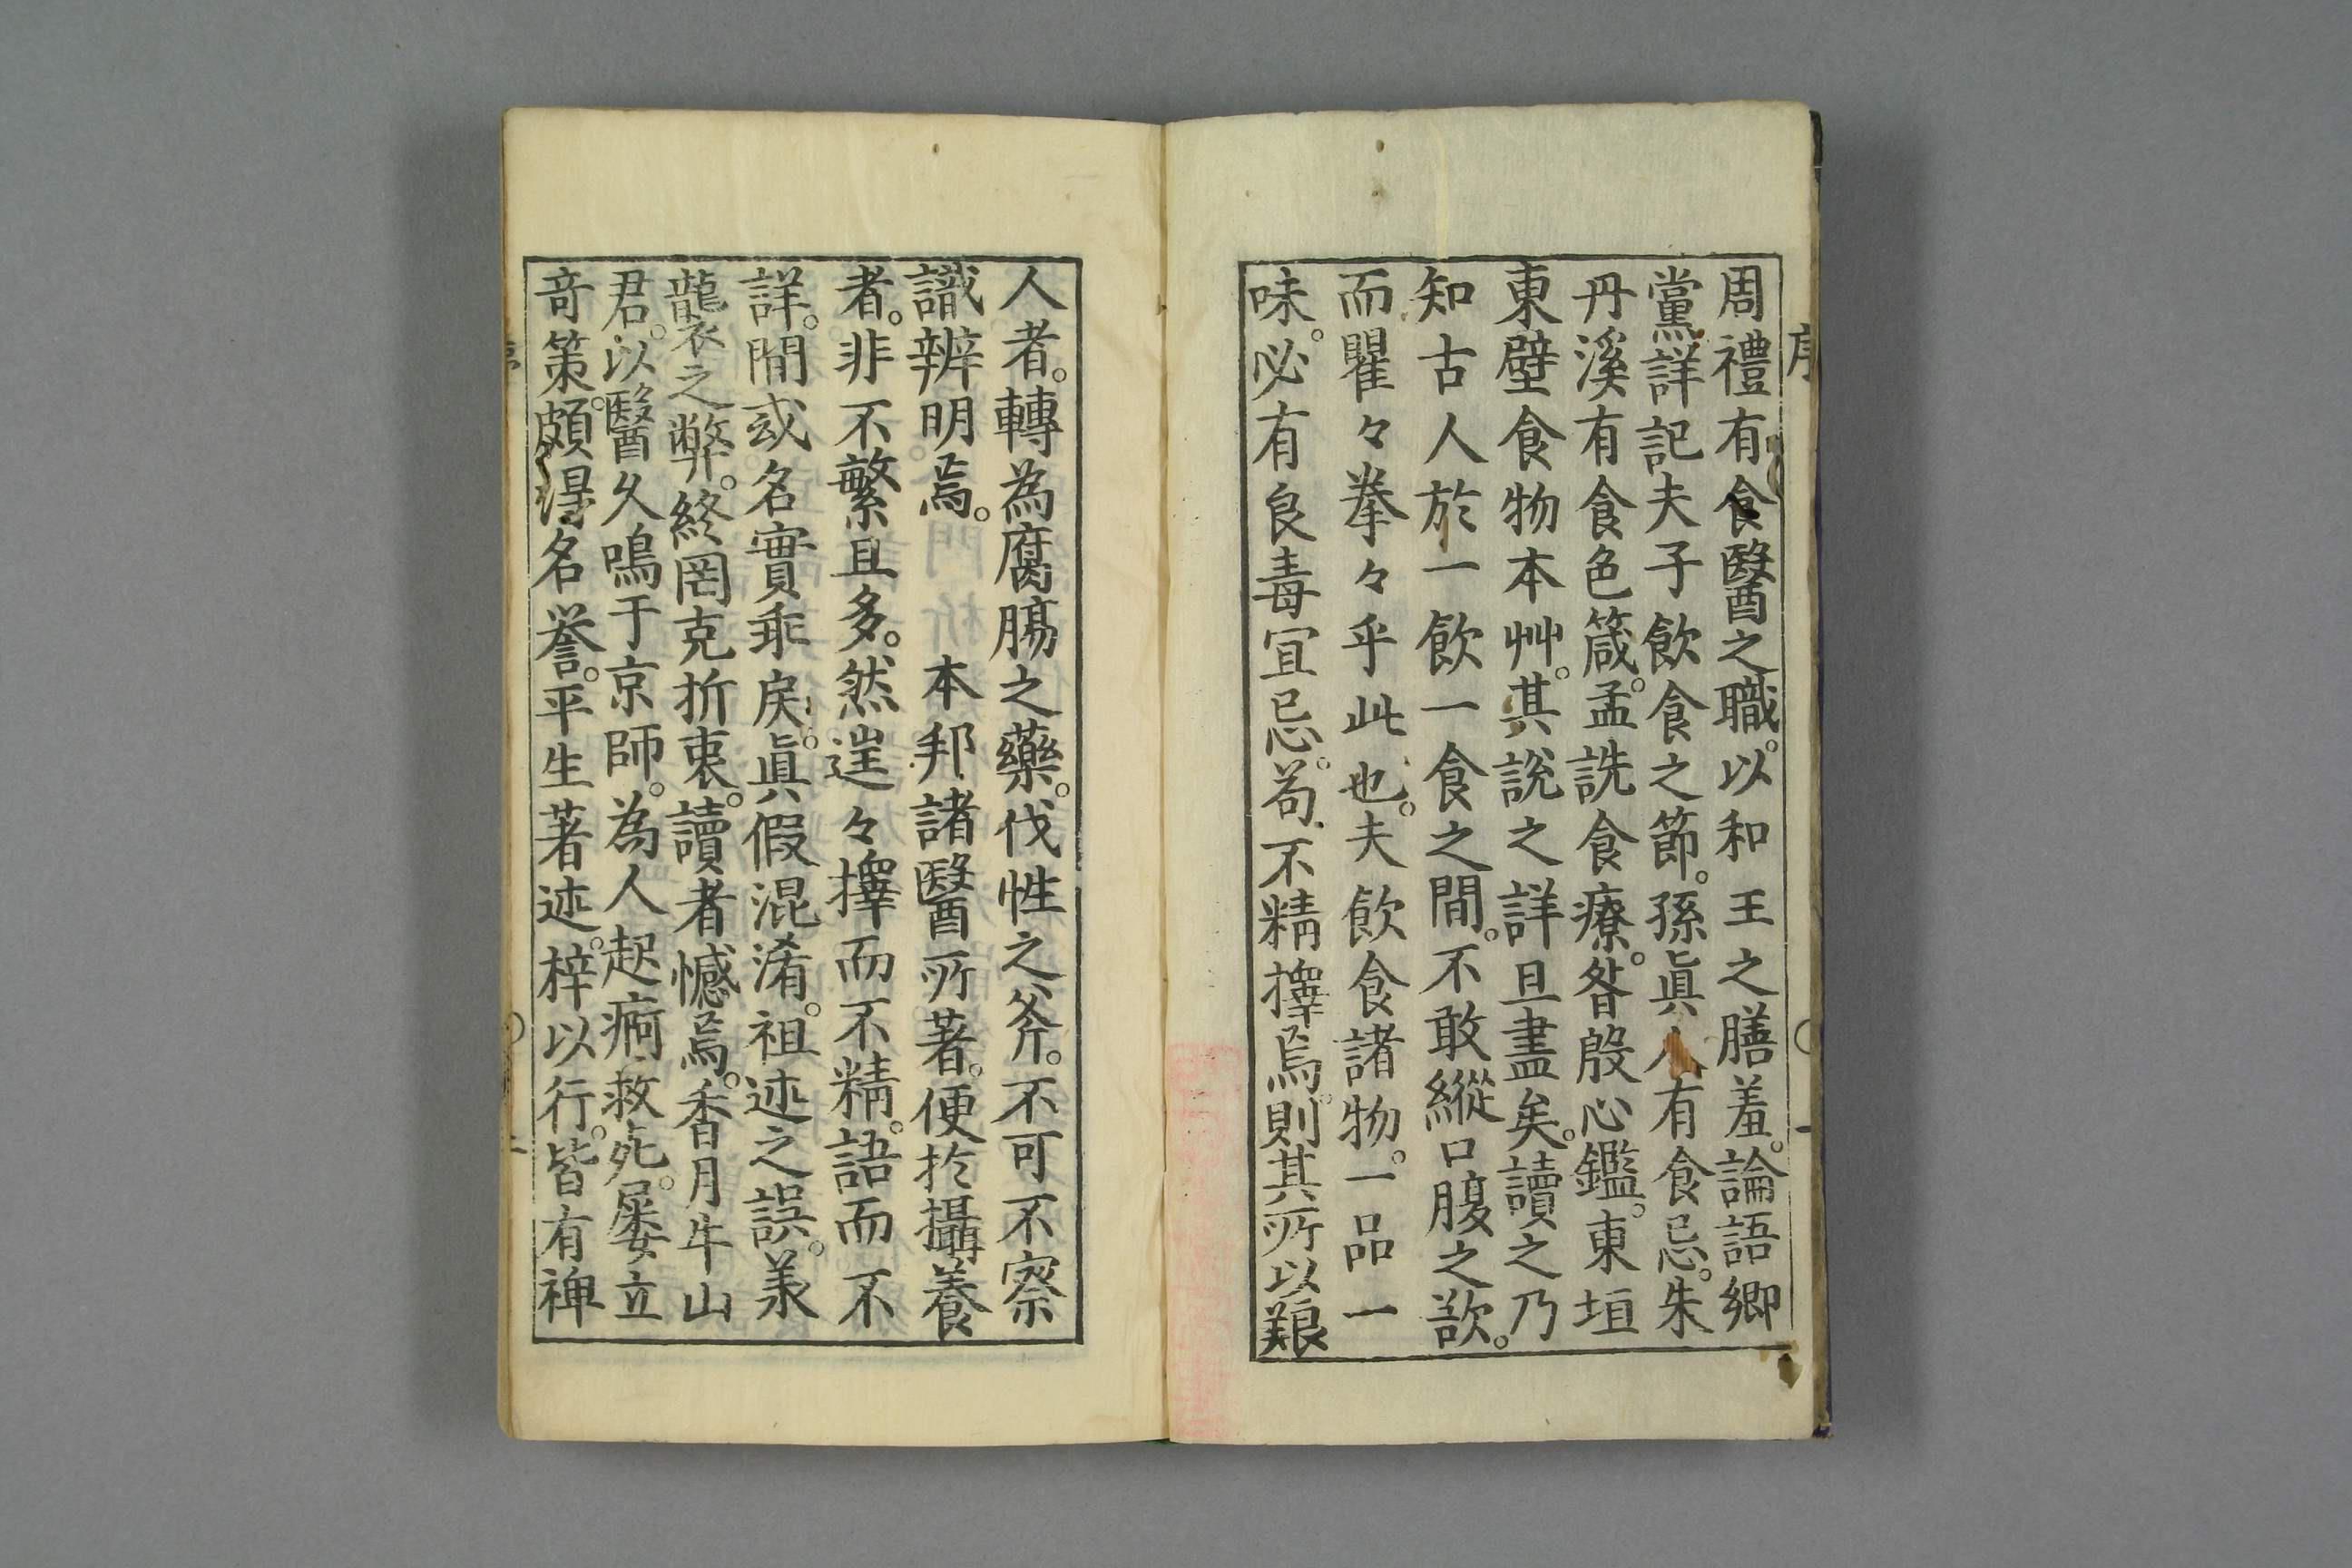 序
周禮有食醫之職。以和王之膳羞。論語鄉
黨。詳記夫子飲食之節。孫眞人有食忌。朱
丹溪有食色箴。孟詵食療。昝殷心鑑。東垣
東壁食物本艸。其說之詳且盡矣。讀之乃
知古人於一飲一食之間。不敢縱口腹之歆。
而瞿々拳々乎此也。夫飲食諸物。一品一
味。必有良毒宜忌。苟不精擇焉。則其所以艱
人者。轉為腐腸之藥。伐性之斧。不可不察
識辨明焉。本邦諸醫所著。便於攝養
者。非不繁且多。然逞々擇而不精。語而不
詳。間或名實乖戾。眞假混淆。祖述之誤。羕
襲之弊。終罔克折衷。讀者憾焉。香月牛山
君。以醫久鳴于京師。為人起痾救死。屡立
竒策。頗得名誉。平生著述。梓以行。皆有裨